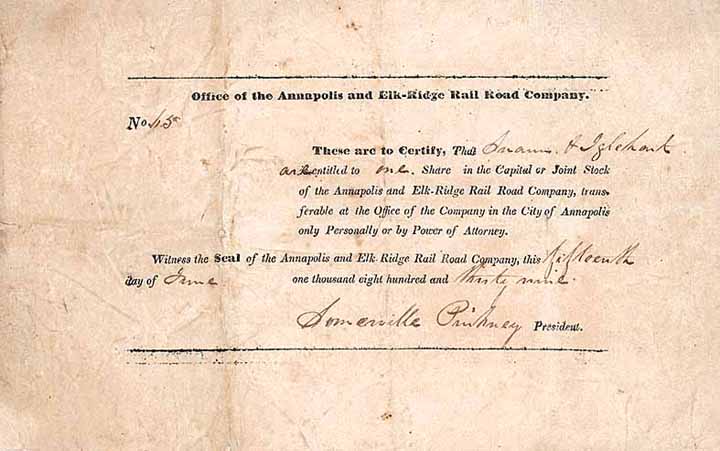 Office of the Annapolis and Elk-Ridge Rail Road Company.
No 45
These are to Certify, That & Iglehart
are entitled to one Share in the Capital or Joint Stock
of the Annapolis and Elk-Ridge Rail Road Company, trans-
ferable at the Office of the Company in the City of Annapolis
only Personally or by Power of Attorney.
Witness the Seal of the Annapolis and Elk-Ridge Rail Road Company, this fifteenth
day of June one thousand eight hundred and thirty nine.
Somerville Pinkney President.